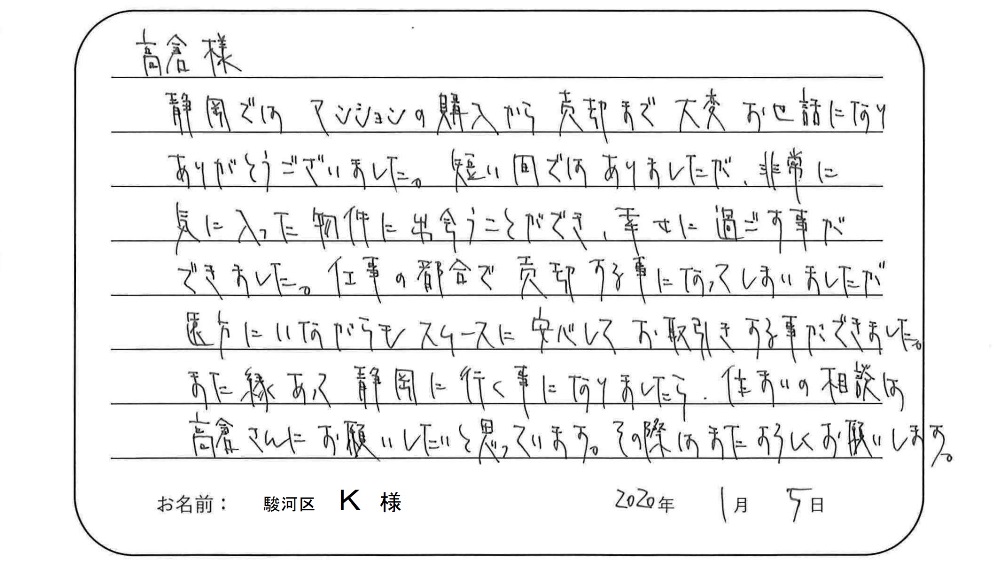 高倉様
静岡では マンションの購入から 売却まで 大変 お世話になり
ありがとうございました。短い間ではありましたが、非常に
気に入った物件に出会うことができ、幸せに過ごす事が
できました。仕事の都合で売却する事になってしまいましたが
遠方にいながらもスムースに安心してお取引きする事ができました。
また縁あって静岡に行く事になりましたら、住まいの相談は
高倉さんにお願いしたいと思っています。その際はまたよろしくお願いします。
お名前： 駿河区 K 様 2020年 1月 5日